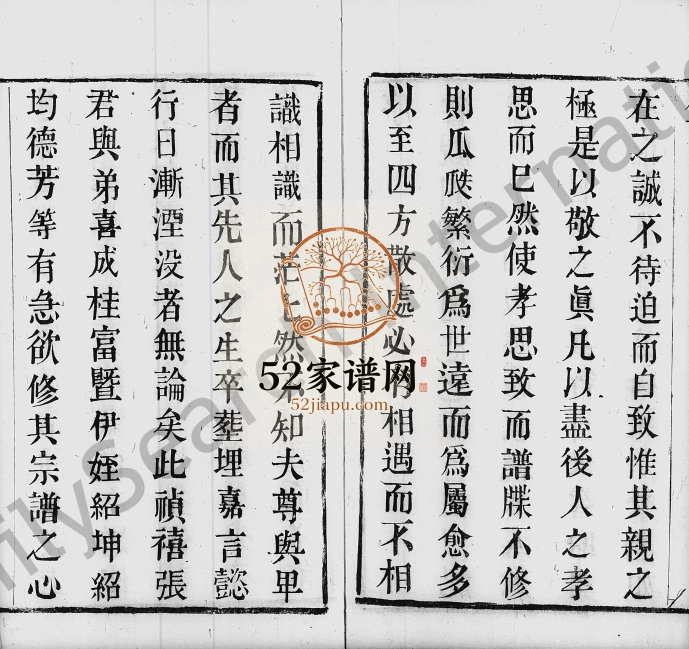 在之誠不待迫而自致惟其親之
極是以敬之眞凡以盡後人之孝
思而已然使孝思致而譜牒不修
則瓜瓞繁衍爲世遠而爲屬愈多
以至四方散處必有相遇而不相
識相識而茫茫然不知夫尊與卑
者而其先人之生卒塟埋嘉言懿
行日漸湮没者無論矣此禎禧張
君與弟喜成桂富暨伊姪紹坤紹
均德芳等有急欲修其宗譜之心
52家谱网
52jiapu.com
ilySearch International